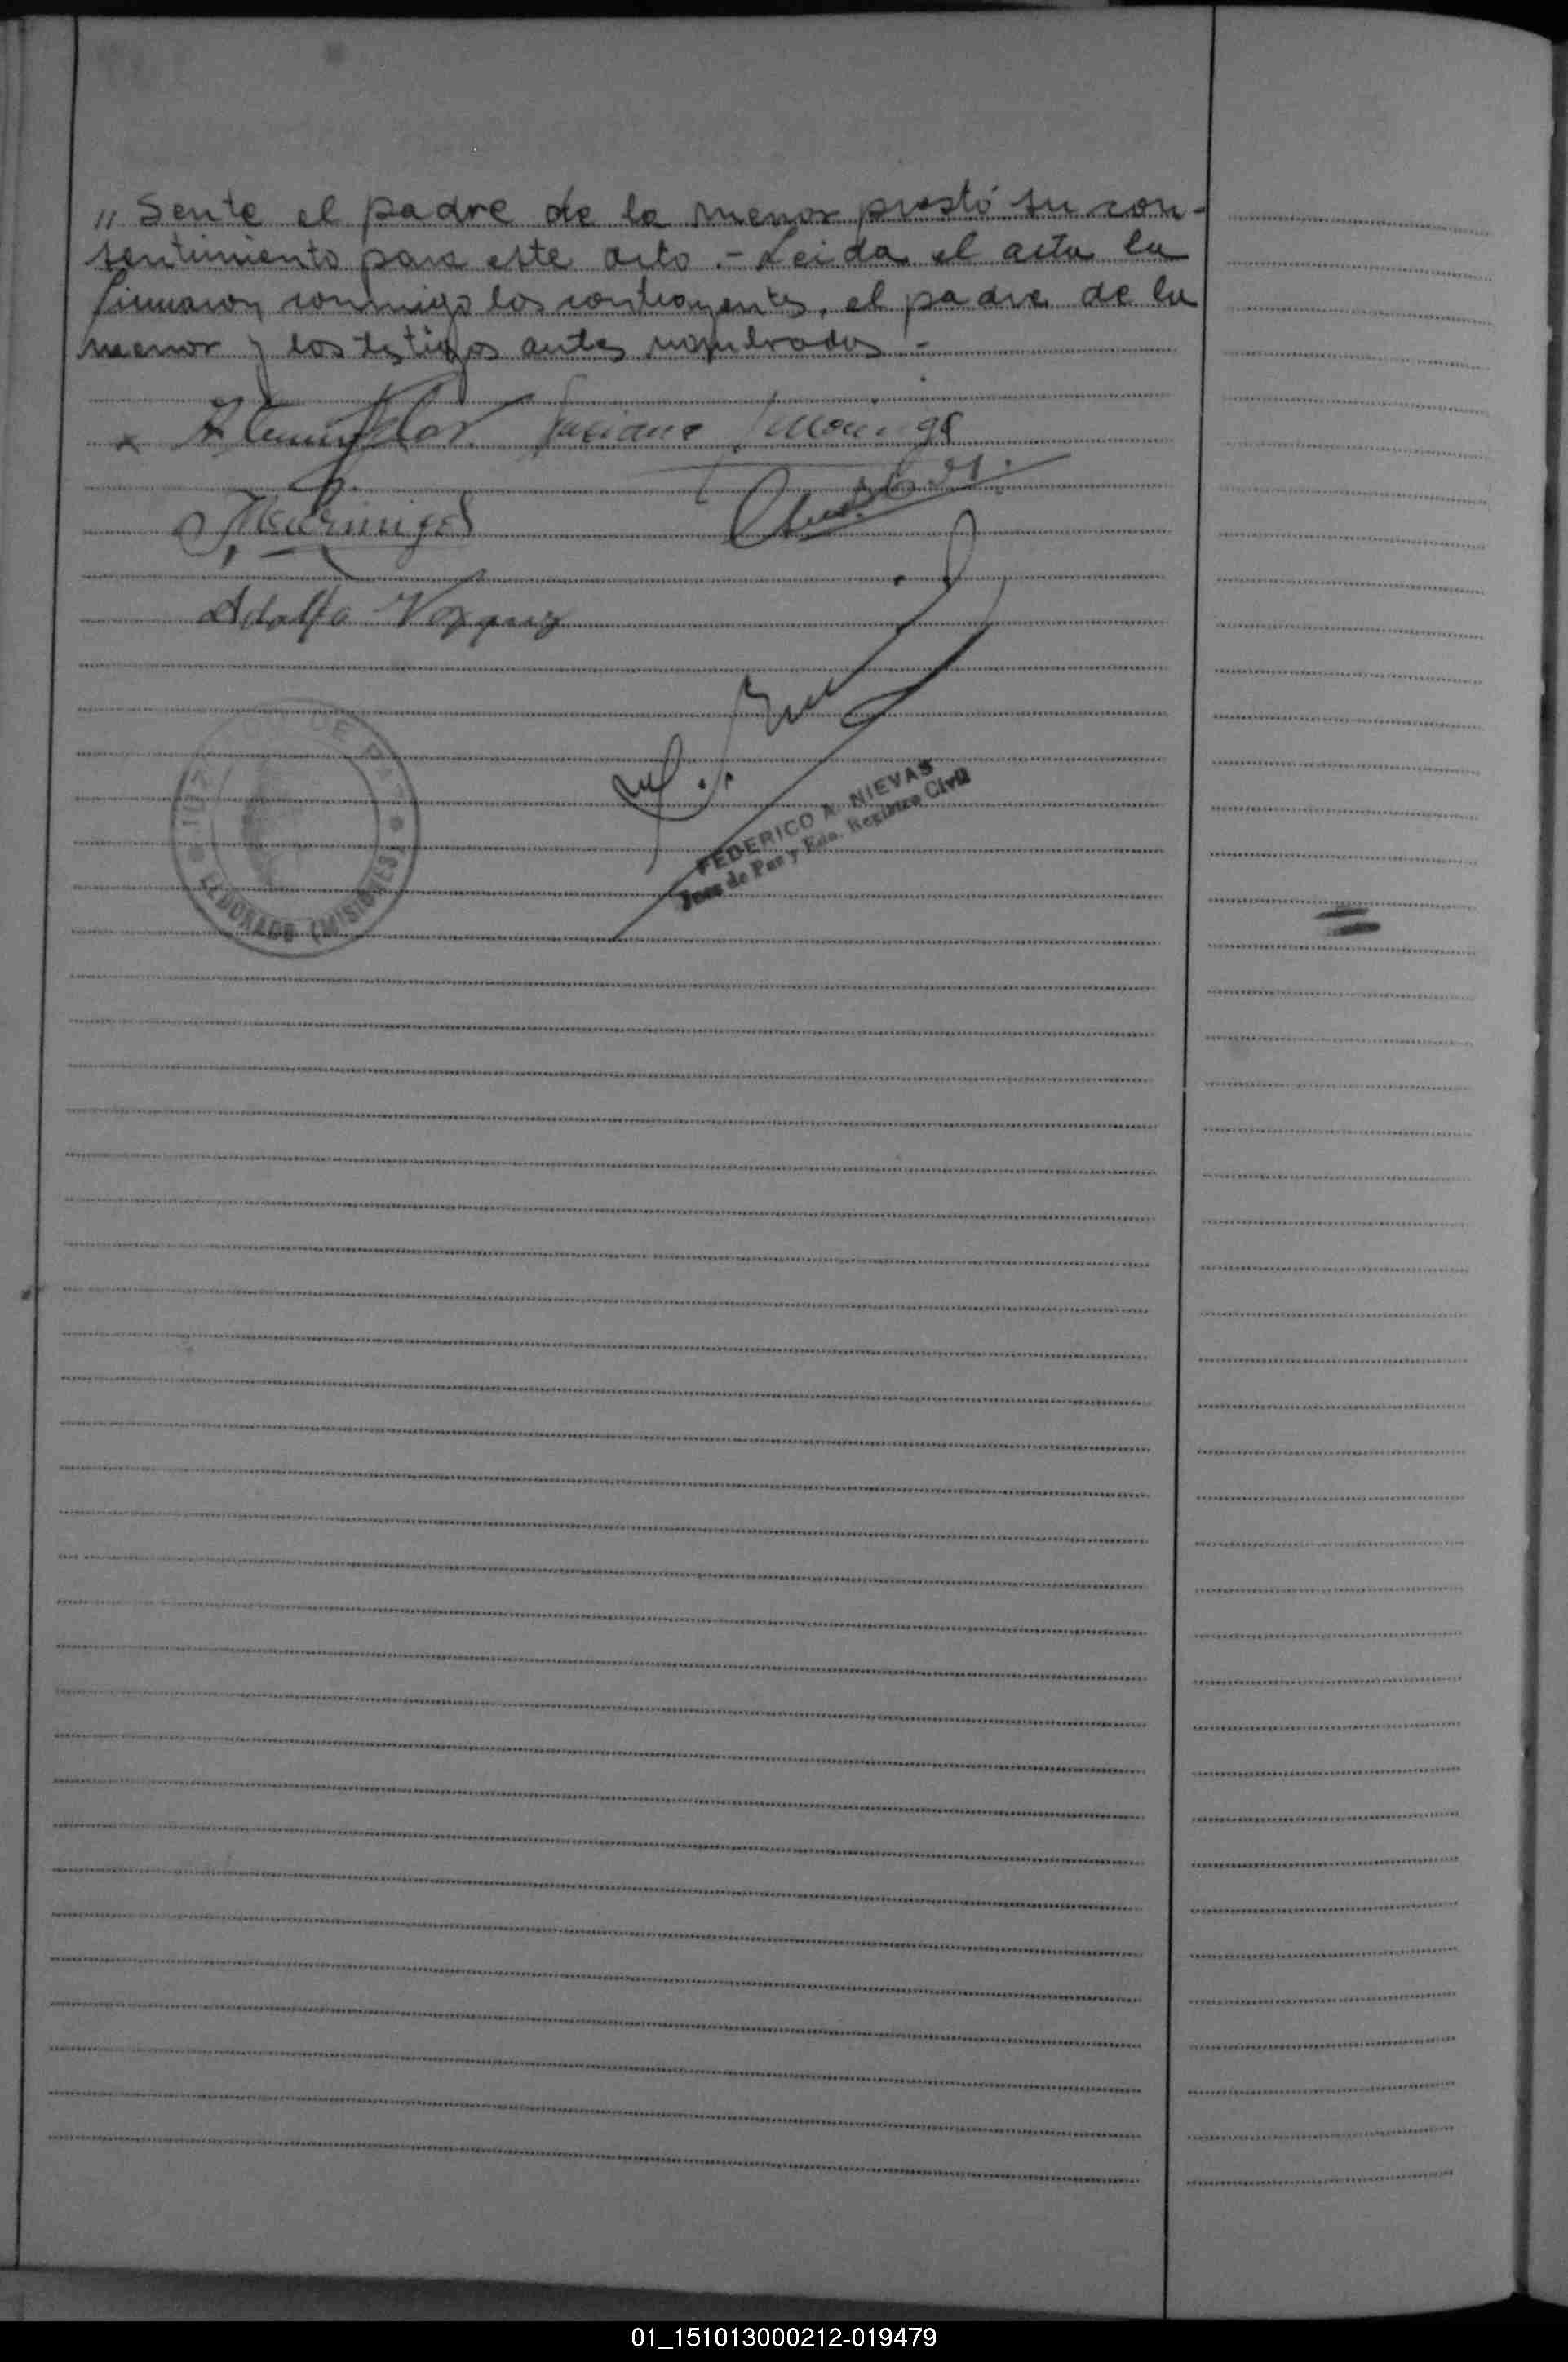 " Sente el padre de la menor prestó su con-
sentimiento para este acto .- Leida el acta la
firmaron conmigo los contrayentes, el padre de la
menor y los testigos antes nombrados -
Luciano
Adolfo Vazquez
JUEZ DE PAZ
ELDORADO (MISIONES)
FEDERICO A. NIEVAS
Juez de Paz y Edo. Registro Civil
01_151013000212-019479